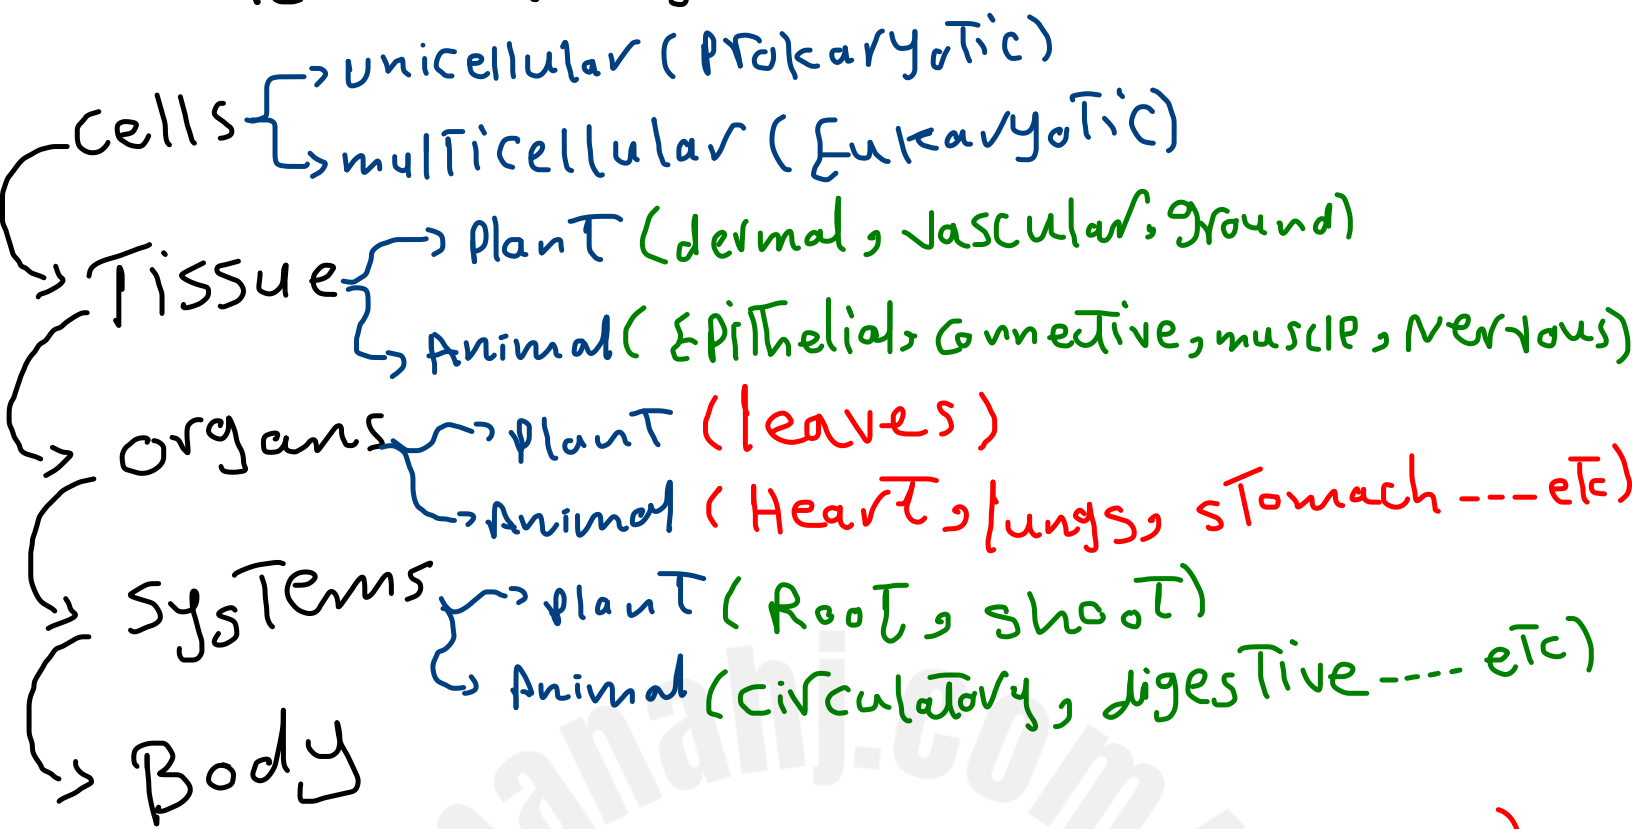 cells → unicellular (Prokaryotic)
→ multicellular (Eukaryotic)
Tissue → Plant (dermal, vascular, ground)
→ Animal (Epithelial, connective, muscle, Nervous)
organs → Plant (leaves)
→ Animal (Heart, lungs, stomach ---etc)
systems → Plant (Root, shoot)
→ Animal (circulatory, digestive ---- etc)
Body
anahj.com